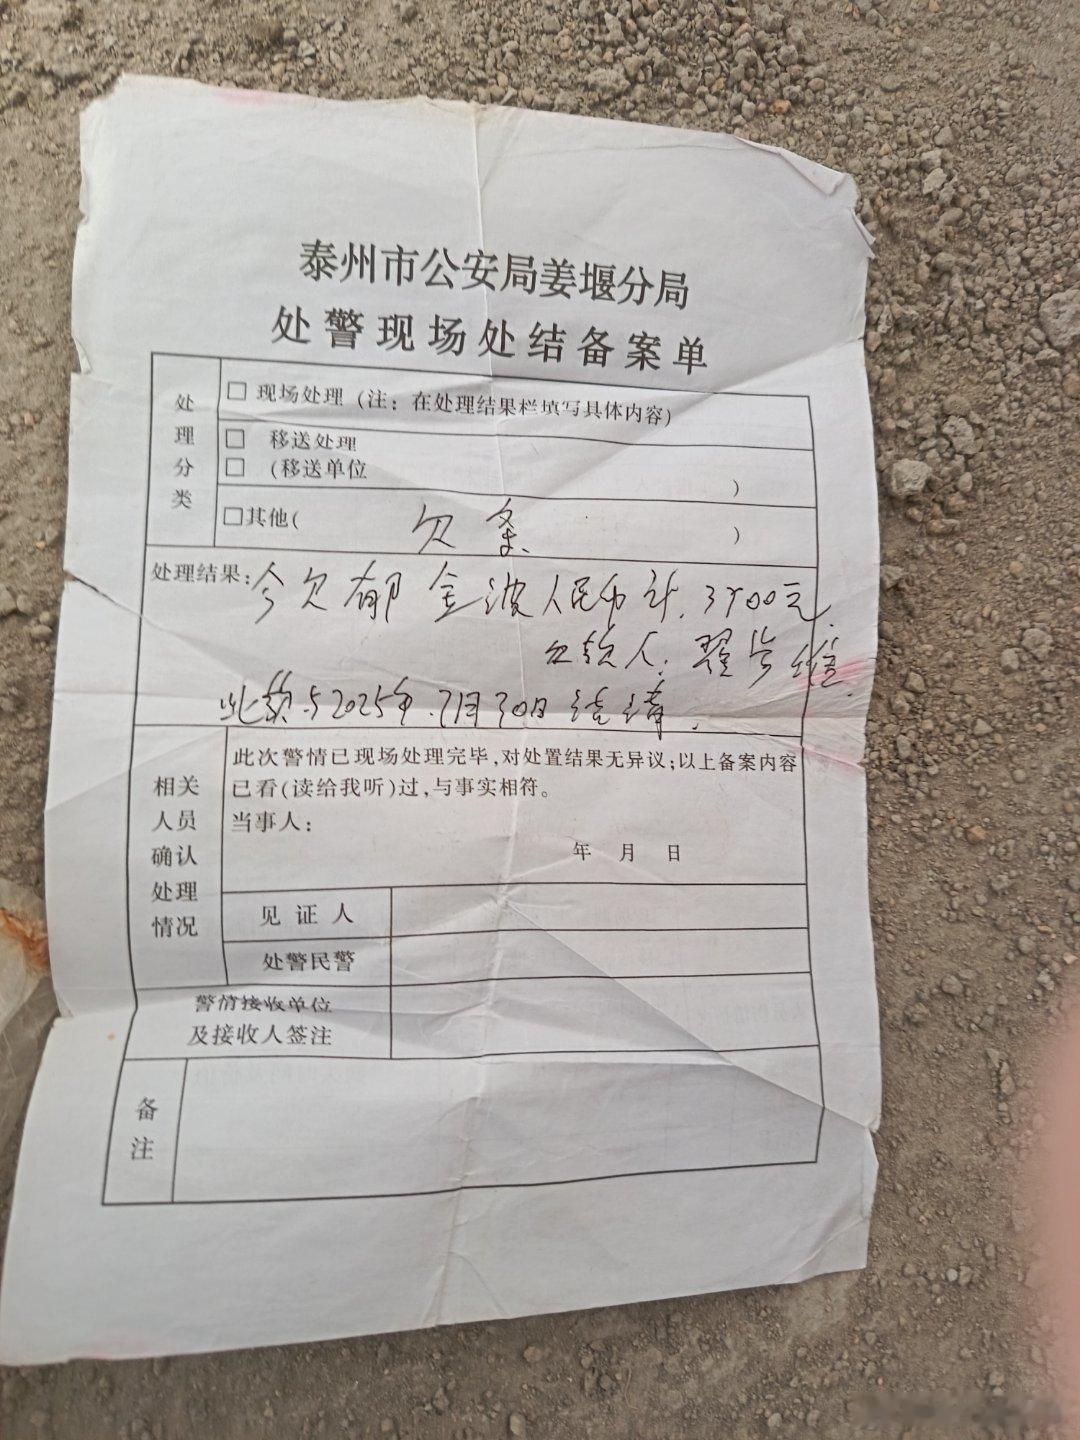 泰州市公安局姜堰分局
处警现场处结备案单
处理分类
□ 现场处理（注：在处理结果栏填写具体内容）
□ 移送处理
□ （移送单位 ）
□其他（ 欠条 ）
处理结果：今欠郁金波人民币计.3700元.
欠款人：翟
此款与2025年.7月30日结清.
相关人员确认处理情况
此次警情已现场处理完毕，对处置结果无异议；以上备案内容
已看（读给我听）过，与事实相符。
当事人：
年 月 日
见证人
处警民警
警情接收单位
及接收人签注
备注